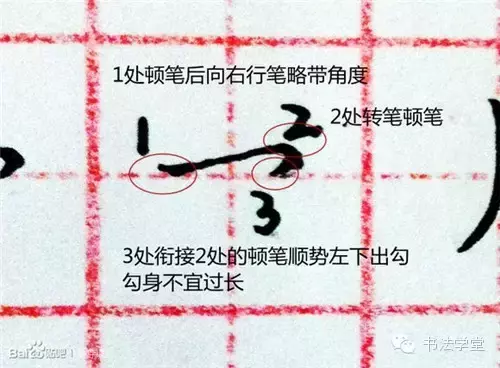 1处顿笔后向右行笔略带角度
1
2
2处转笔顿笔
3
3处衔接2处的顿笔顺势左下出勾
勾身不宜过长
Baidu贴吧
书法学堂